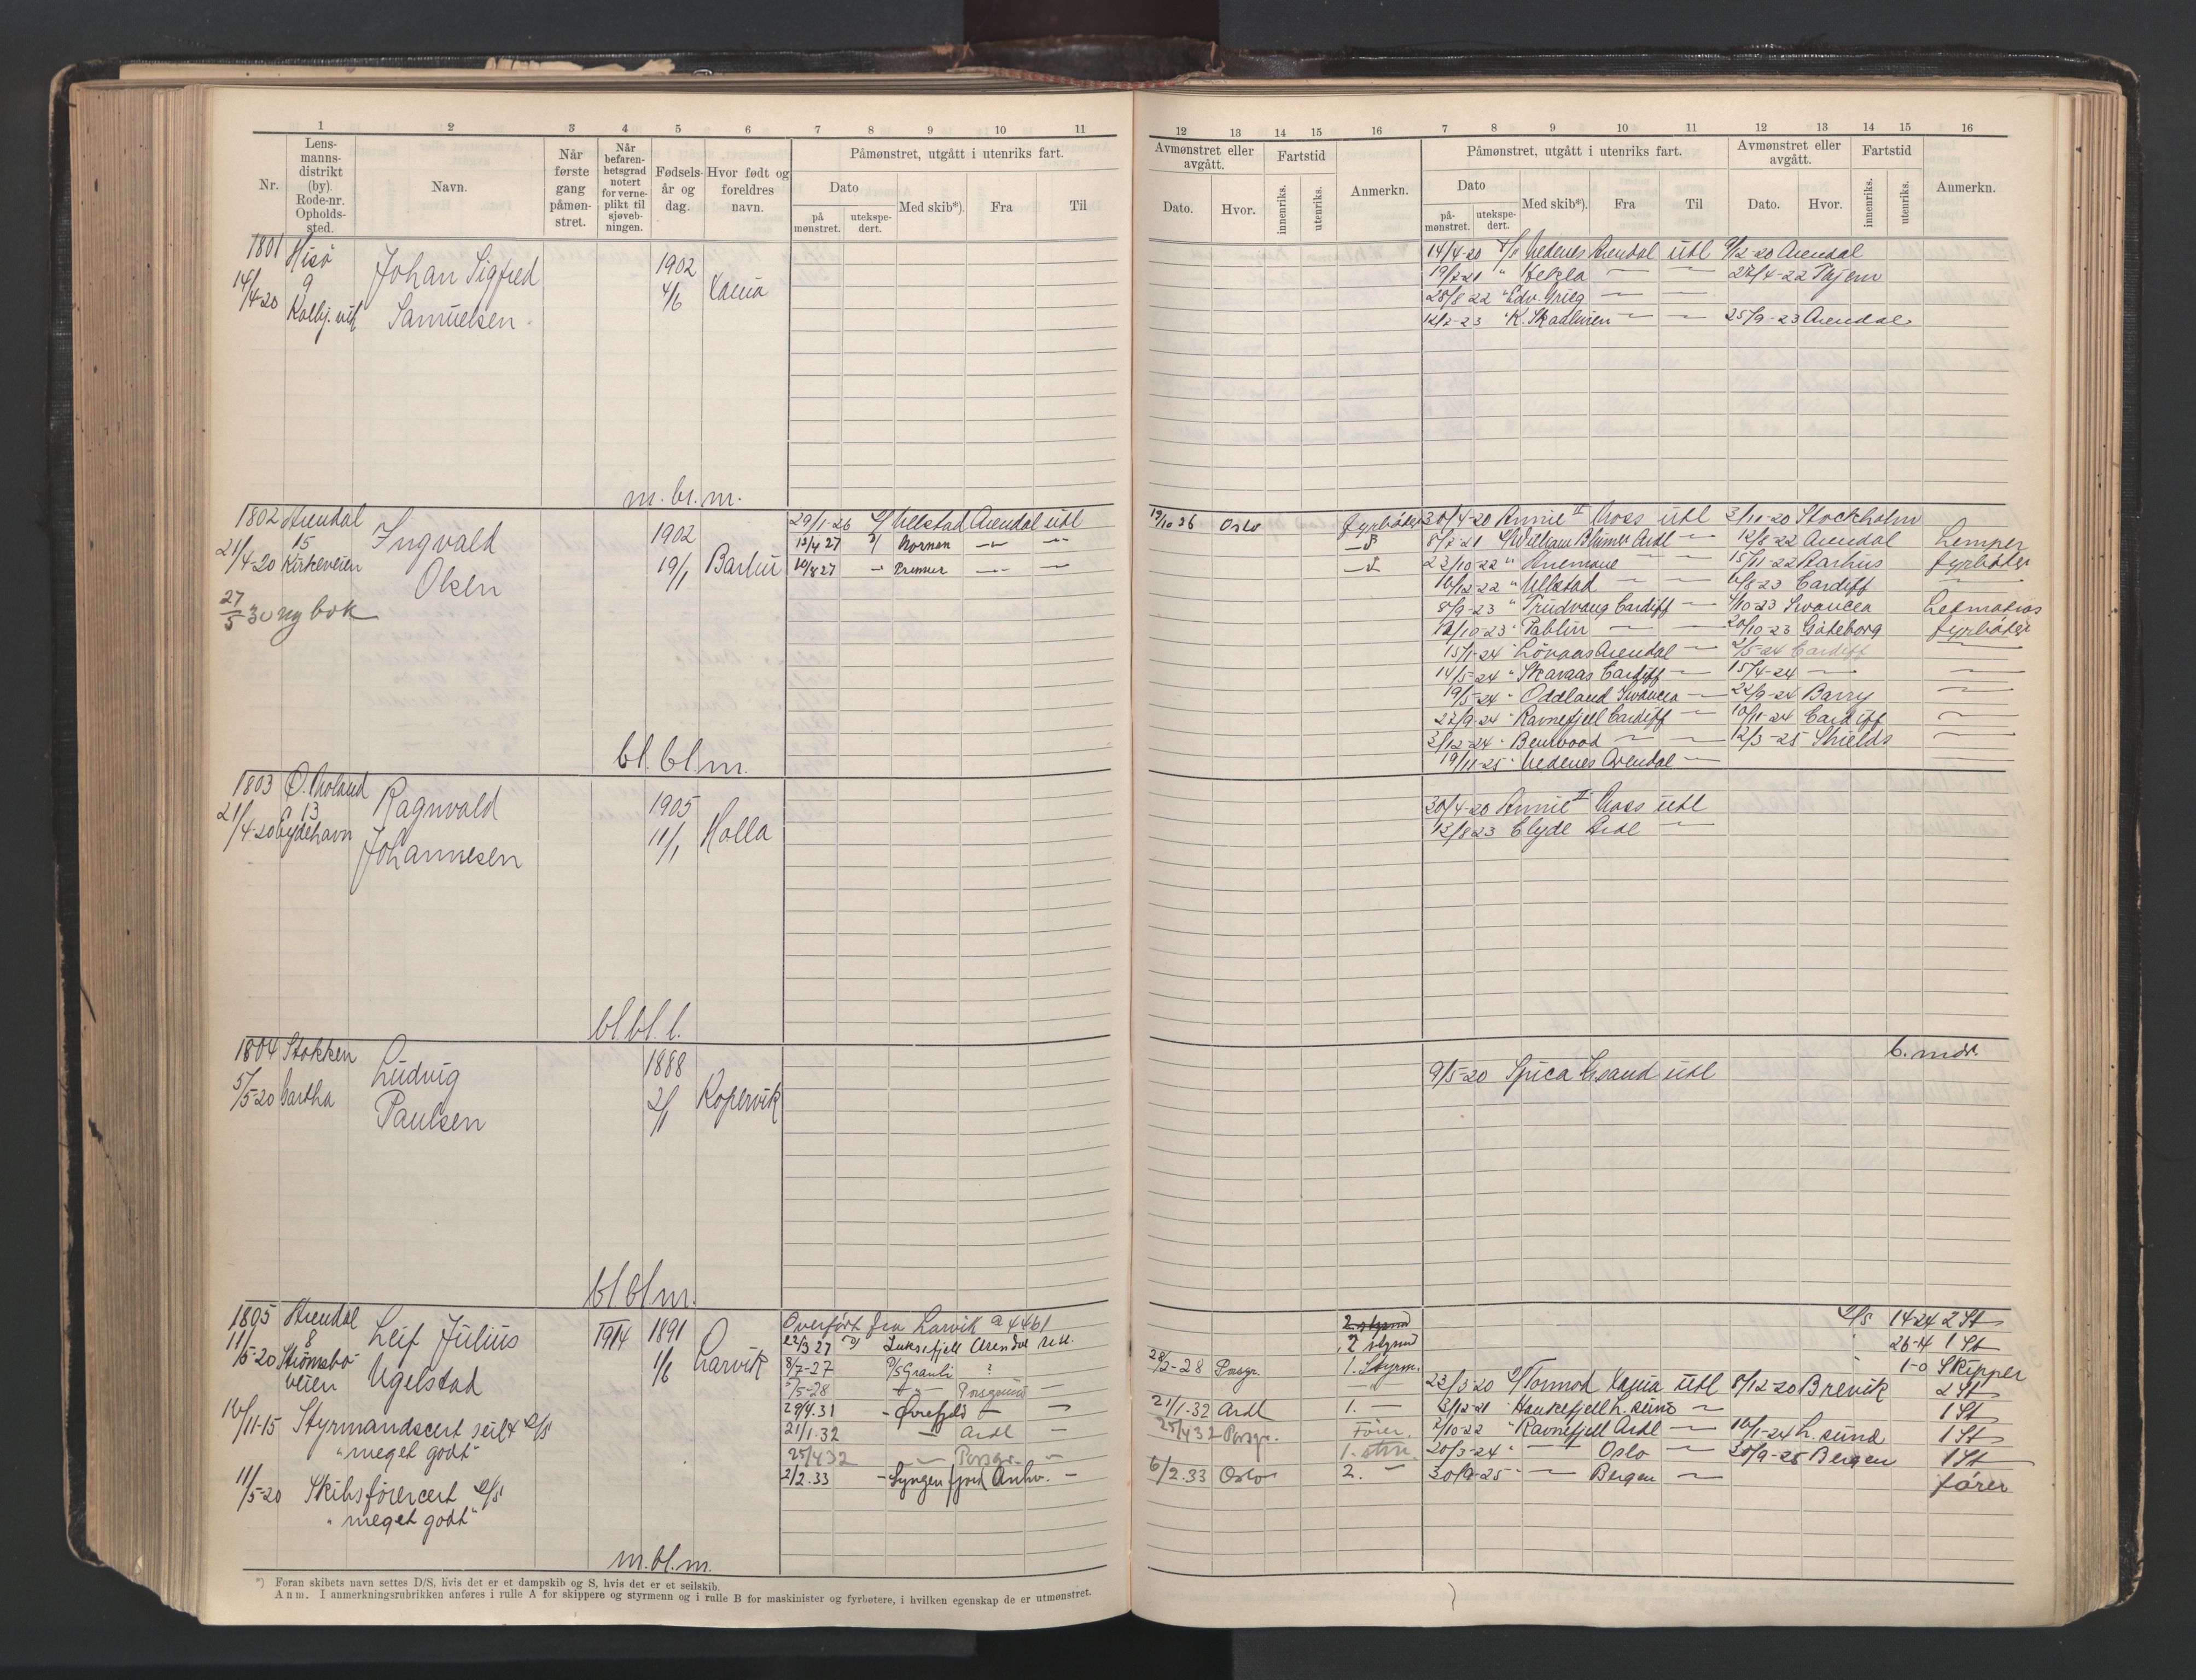 1 2 3 4 5 6 7 8 9 10 11
Nr.
Lens-
manns-
distrikt
(by).
Rode-nr.
Opholds-
sted.
Navn.
Når
første
gang
påmøn-
stret.
Når
befaren-
hetsgrad
notert
for verne-
plikt til
sjøveb-
ningen.
Fødsels-
år og
dag.
Hvor født og
foreldres
navn.
Påmønstret, utgått i utenriks fart.
Dato
på
mønstret.
utekspe-
dert.
Med skib*).
Fra
Til
1801 Hisö
14/4-20 9
Johan Sigfred
Samuelsen
1902
4/6
m. br. m.
1802 Arendal
21/4-20 15
Kirkeveien
27/5 30 ny bok
Ingvald
Olsen
1902
19/1 Barbu
29/1-26 Ulstad Arendal utl
13/4 27 Nornen — —
10/8 27 — Premier — —
bl. bl. m.
1803 Ö. Moland
21/4-20 a 13
Eydehavn
Ragnvald
Johannesen
1905
11/1 Holla
bl. bl. l.
1804 Stokken
5/5-20
Ludvig
Paulsen
1888
2/1 Kopervik
bl bl m.
1805 Arendal
11/5-20 8
Strömsbo-
veien
Leif Julius
Ugelstad
1914 1891
1/6 Larvik
Overført fra Larvik a 4461
22/3 27 Luksefjell Arendal utl.
8/7-27 D/S Granli ?
/5-28 — — Porsgrund —
29/4.31 — Øvrefjeld — —
21/1.32 — Ardl —
25/4 32 — Porsgr. —
2/2.33 — Lyngenfjord Anhv. —
10/11-15 Styrmandscert seil & D/S
"meget godt"
11/5-20 Skibsförercert D/S
"meget godt"
m. bl. m.
*) Foran skibets navn settes D/S, hvis det er et dampskib og S, hvis det er et seilskib.
Anm. I anmerkningsrubrikken anføres i rulle A for skippere og styrmenn og i rulle B for maskinister og fyrbøtere, i hvilken egenskap de er utmønstret.
12 13 14 15 16 7 8 9 10 11 12 13 14 15 16
Avmønstret eller
avgått.
Dato.
Hvor.
Fartstid
innenriks.
utenriks.
Anmerkn.
Påmønstret, utgått i utenriks fart.
Dato
på-
mønstret.
utekspe-
dert.
Med skib*).
Fra
Til
Avmønstret eller
avgått.
Dato.
Hvor.
Fartstid
innenriks.
utenriks.
Anmerkn.
14/4-20 Nedenes Arendal utl 9/12-20 Arendal
19/2-21 " Hekla — — 27/4-22 Thjem
28/8-22 " Edv. Grieg — —
12/2-23 " K. Skadhvien — — 25/9-23 Arendal
19/10 26 Oslo fyrböter 30/4-20 Annie II Moss utl 3/11-20 Stockholm
8/7-21 William Blumer Ardl — 12/8-22 Arendal Lemper
22/10-22 " Anemone — 15/11-22 Aarhus fyrböter
16/12-22 " Ulstad — — 16/8-23 Cardiff —
8/9-23 " Trudvang Cardiff — 4/10-23 Swancea Letmatros
12/10-23 " Pablin — — 20/10-23 Göteborg fyrböter
15/1-24 " Lövaas Arendal — 2/5-24 Cardiff —
14/5-24 " Skaraas Cardiff — 15/4-24 — —
19/5-24 " Oddland Swancea — 22/9-24 Barry —
22/9-24 " Ravnefjell Cardiff — 10/11-24 Cardiff —
3/12-24 " Benwood — — 12/3-25 Shields —
19/11-25 " Nedenes Arendal —
30/4-20 Annie II Moss utl
13/8 23 Clyde Ardl —
6. mdr.
9/5-20 Spica Krsand utl
2 styrmd D/S 14-24 2 St
2 styrmd 26-4 1 St
/2-28 Porsgr. 1. Styrm. 1-0 Skipper
— 23/3-20 Tormod utl 8/12-20 Brevik 2 St
21/1-32 Ardl 1. — 3/12-21 " Haukefjell L. sund — 1 St
25/4 32 Porsgr. Förer. 2/10-22 " Ravnefjell Ardl — 10/1-24 L. sund 1 St
1. strm 20/3-24 " — Oslo — 30/9-25 Bergen 1 St
6/2.33 Oslo 2. — 30/9-25 " — Bergen — förer